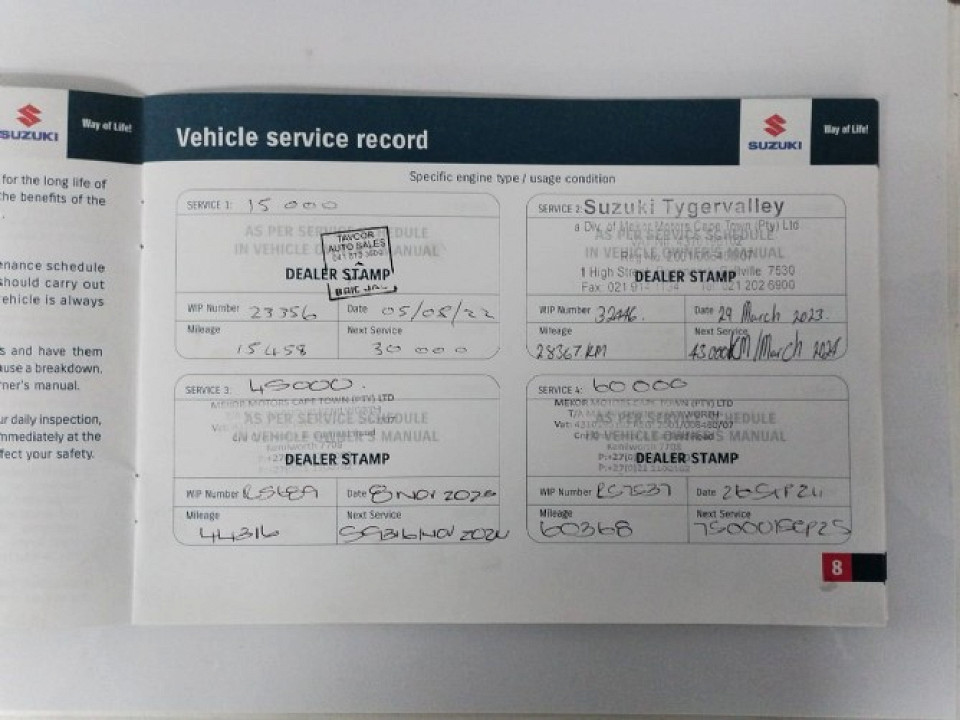 SUZUKI
Way of Life!
for the long life of
the benefits of the
enance schedule
should carry out
vehicle is always
s and have them
use a breakdown.
ner's manual.
ur daily inspection,
mmediately at the
fect your safety.
Vehicle service record
SUZUKI
Way of Life!
Specific engine type / usage condition
SERVICE 1: 15 000
AS PER SERVICE SCHEDULE
IN VEHICLE OWNER'S MANUAL
TAVCOR
AUTO SALES
DEALER STAMP
WIP Number 23356 Date 05/08/22
Mileage 15458
Next Service 30 000
SERVICE 2: Suzuki Tygervalley
a Div. of Mekor Motors Cape Town (Pty) Ltd
AS PER SERVICE SCHEDULE
IN VEHICLE OWNER'S MANUAL
1 High Street 7530
DEALER STAMP
Fax: 021 914 1134 Tel: 021 202 6900
WIP Number 32446. Date 29 March 2023.
Mileage 28367 KM
Next Service 43000KM/March 2024
SERVICE 3: 45000.
MEKOR MOTORS CAPE TOWN (PTY) LTD
AS PER SERVICE SCHEDULE
IN VEHICLE OWNER'S MANUAL
Kenilworth 7708
DEALER STAMP
WIP Number Date 8 NOV
Mileage 44316
Next Service 59316/NOV 2024
SERVICE 4: 60000
MEKOR MOTORS CAPE TOWN (PTY) LTD
AS PER SERVICE SCHEDULE
IN VEHICLE OWNER'S MANUAL
Kenilworth 7708
DEALER STAMP
WIP Number RS7537 Date 26 SEP 24
Mileage 60368
Next Service 75000/SEP25
8